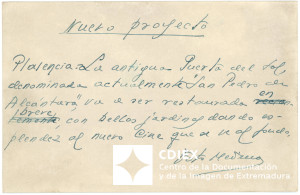 Nuevo proyecto
Plasencia. La antigua Puerta del Sol
denominada actualmente "San Pedro de
Alcántara" va a ser restaurada en
breve con bellos jardines dando es-
plendez al nuevo Cine que se ve al fondo.
CDIEX
Centro de la Documentación
y de la Imagen de Extremadura